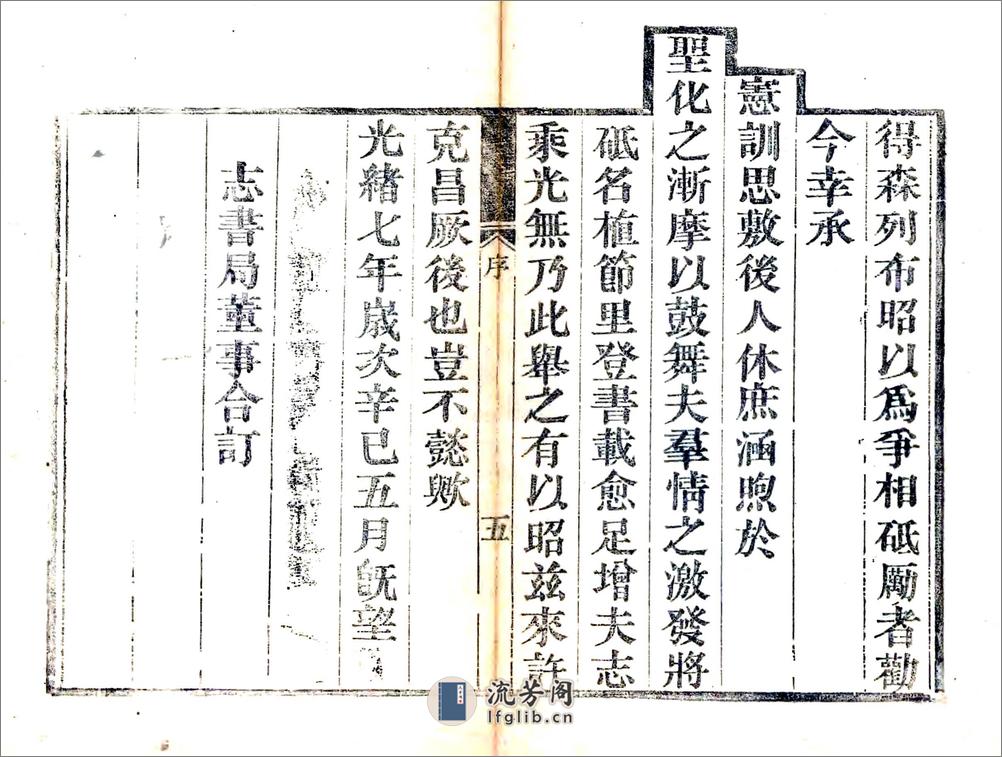 得森列布昭以爲爭相砥厲者勸
今幸承
憲訓思敷後人休庶涵煦於
聖化之漸摩以鼓舞夫羣情之激發將
砥名植節里登書載愈足增夫志
乘光無乃此舉之有以昭兹來許
序
五
克昌厥後也豈不懿歟
光緒七年歲次辛巳五月旣望
志書局董事合訂
流芳阁
lfglib.cn